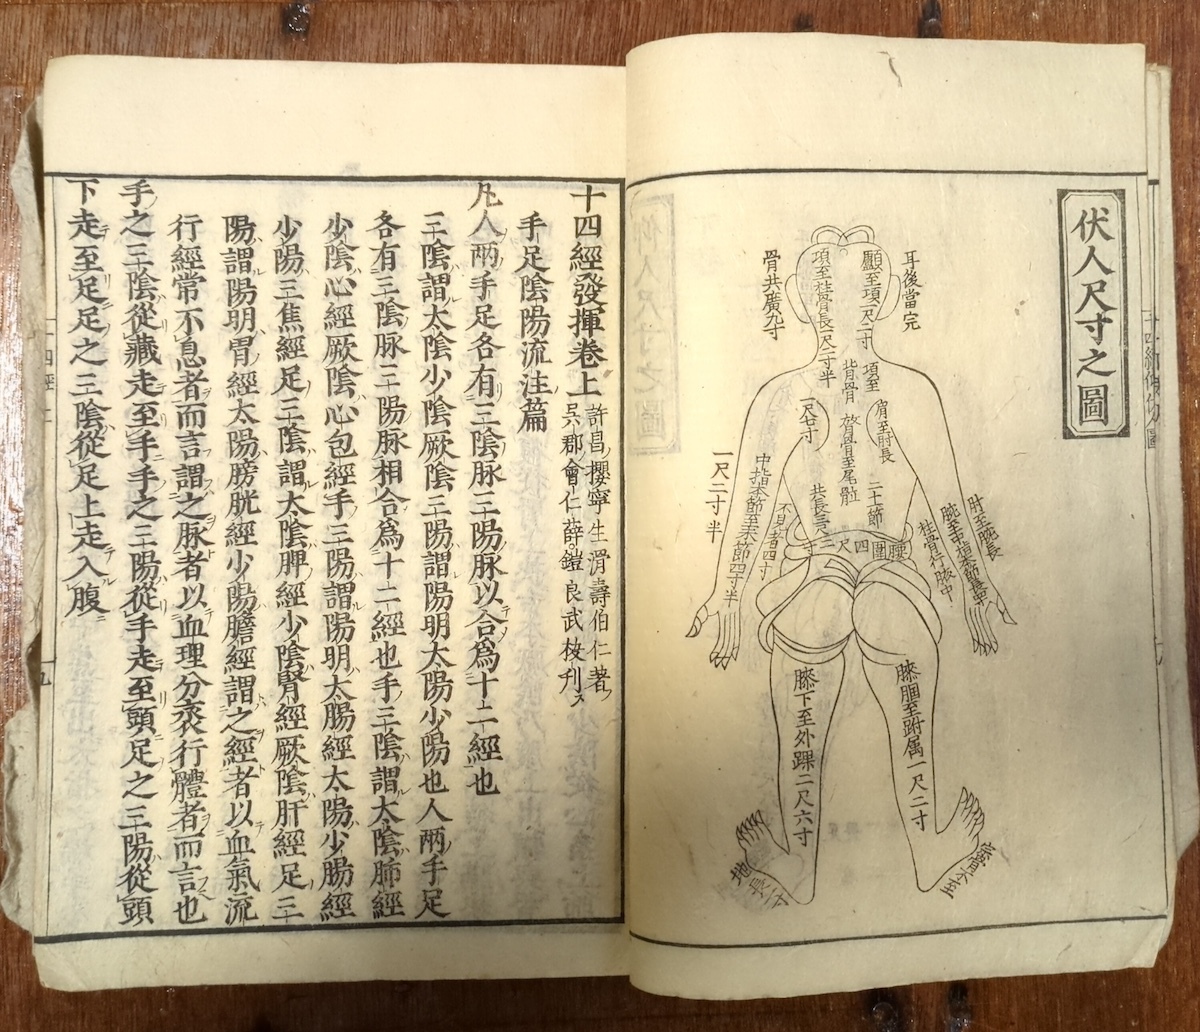 伏人尺寸之圖
耳後當完
骨共廣九寸
顱至項一尺二寸
項至柱骨長二尺寸半
項至
背骨
肩至肘長
一尺七寸
放骨至尾骶
二十節
共長三尺
腰圍四尺二寸
肘至腕長
一尺二寸半
腕至中指本節長四寸
中指本節至末節四寸半
柱骨行腋中
不見者四寸
膝膕至跗属一尺二寸
膝下至外踝二尺六寸
地長
十四經發揮卷上
許昌攖寧生滑壽伯仁著
吳郡會仁薛鎧良武校刋ス
手足陰陽流注篇
凡人兩手足各有三陰脉三陽脉以合為十二經也
三陰謂太陰少陰厥陰三陽謂陽明太陽少陽也人兩手足
各有三陰脉三陽脉相合為十二經也手三陰謂太陰肺經
少陰心經厥陰心包經手三陽謂陽明大腸經太陽少腸經
少陽三焦經足三陰謂太陰脾經少陰腎經厥陰肝經足三
陽謂陽明胃經太陽膀胱經少陽膽經謂之經者以血氣流
行經常不息者而言謂之脉者以血理分衺行體者而言也
手之三陰從藏走至手手之三陽從手走至頭足之三陽從頭
下走至足足之三陰從足上走入腹